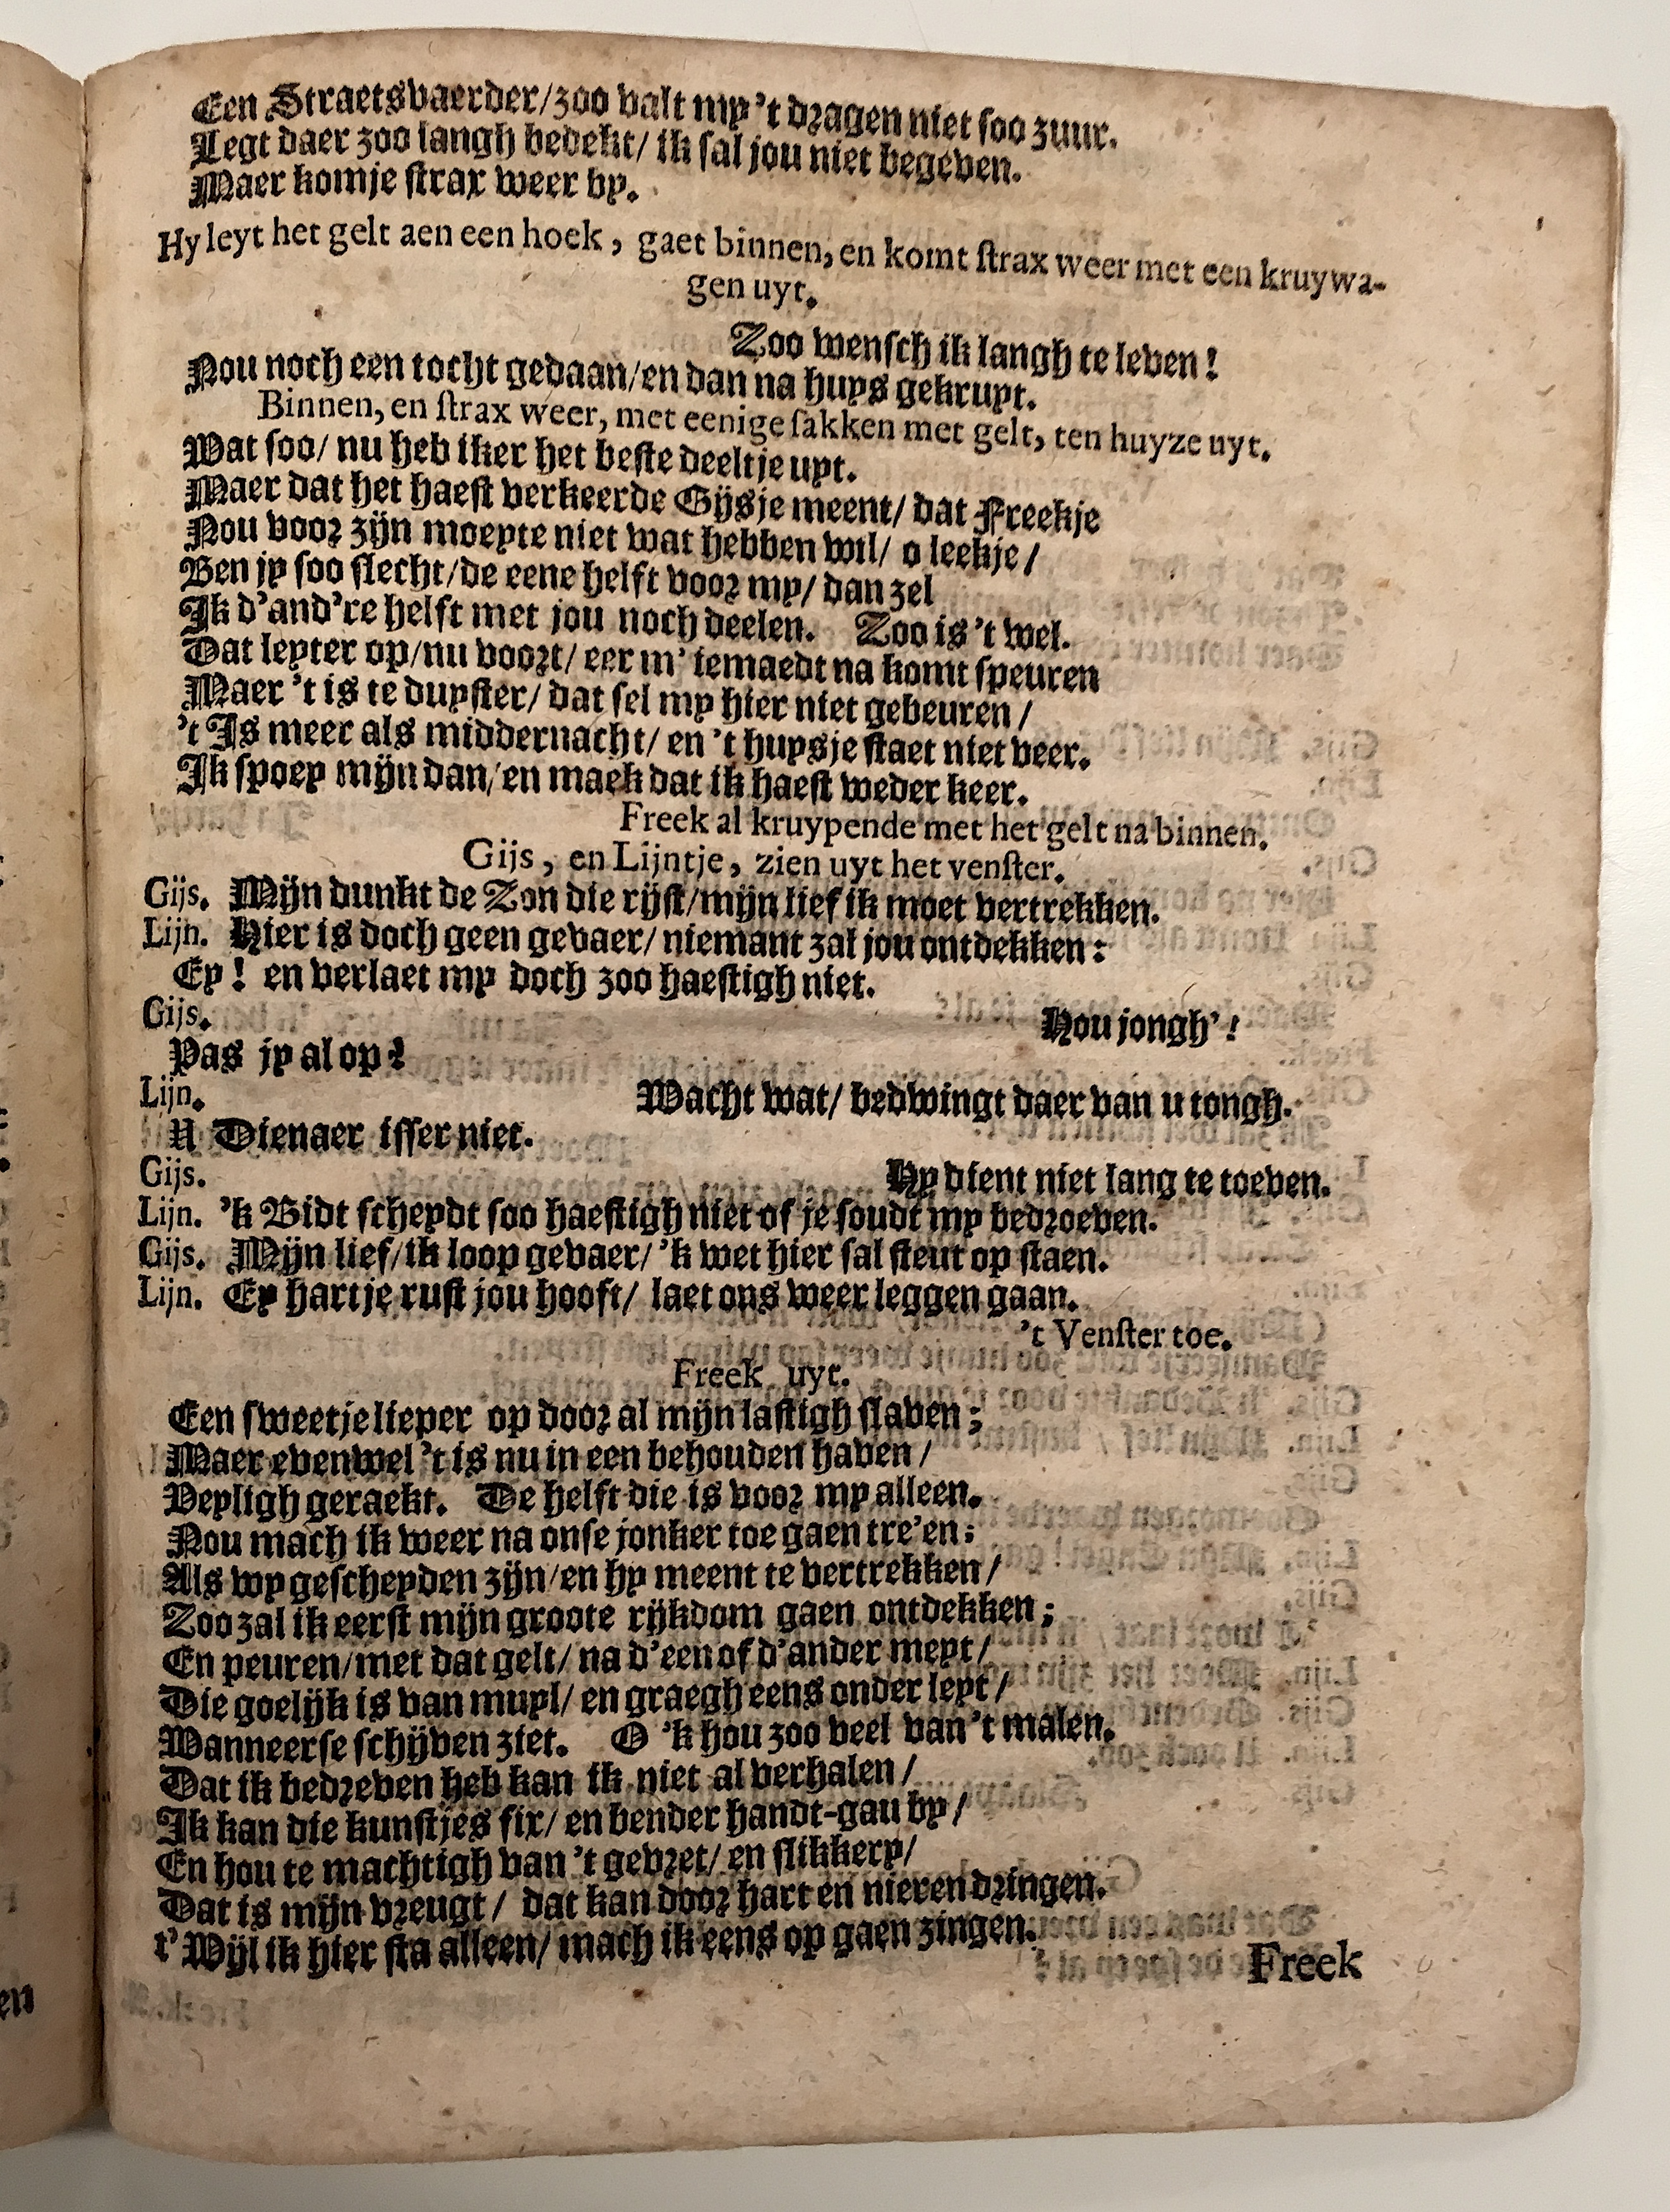 Een Straetsvaerder/zoo valt my 't dragen niet soo zuur.
Legt daer zoo langh bedekt/ ik sal jou niet begeven.
Maer komje strax weer by.
Hy leyt het gelt aen een hoek, gaet binnen, en komt strax weer met een kruywa-
gen uyt.
Zoo wensch ik langh te leven!
Nou noch een tocht gedaan/en dan na huys gekruyt.
Binnen, en strax weer, met eenige sakken met gelt, ten huyze uyt.
Wat soo/ nu heb iker het beste deeltje uyt.
Maer dat het haest verkeerde Gijsje meent/ dat Freekje
Nou voor zijn moeyte niet wat hebben wil/ o leekje/
Ben jy soo slecht/de eene helft voor my/ dan zel
Ik d'and're helft met jou noch deelen. Zoo is 't wel.
Dat leyter op/nu voort/ eer m' iemaedt na komt speuren
Maer 't is te duyster/ dat sel my hier niet gebeuren/
't Is meer als middernacht/ en 't huysje staet niet veer.
Ik spoey mijn dan/en maek dat ik haest weder keer.
Freek al kruypende met het gelt na binnen.
Gijs, en Lijntje, zien uyt het venster.
Gijs. Mijn dunkt de Zon die rijst/mijn lief ik moet vertrekken.
Lijn. Hier is doch geen gevaer/ niemant zal jou ontdekken:
Ey! en verlaet my doch zoo haestigh niet.
Gijs. Hou jongh'!
Pas jy al op?
Lijn. Wacht wat/ bedwingt daer van u tongh.
U Dienaer isser niet.
Gijs. Hy dient niet lang te toeven.
Lijn. 'k Bidt scheydt soo haestigh niet of je soudt my bedroeven.
Gijs. Mijn lief/ik loop gevaer/ 'k wet hier sal steut op staen.
Lijn. Ey hartje rust jou hooft/ laet ons weer leggen gaan.
't Venster toe.
Freek uyt.
Een sweetje lieper op door al mijn lastigh slaven;
Maer evenwel 't is nu in een behouden haven/
Veyligh geraekt. De helft die is voor my alleen.
Nou mach ik weer na onse jonker toe gaen tre'en:
Als wy gescheyden zijn/en hy meent te vertrekken/
Zoo zal ik eerst mijn groote rijkdom gaen ontdekken;
En peuren/met dat gelt/ na d'een of d'ander meyt/
Die goelijk is van muyl/ en graegh eens onder leyt/
Wanneerse schijven ziet. O 'k hou zoo veel van 't malen.
Dat ik bedreven heb kan ik niet al verhalen/
Ik kan die kunstjes fix/ en bender handt-gau by/
En hou te machtigh van 't gevret/ en slikkery/
Dat is mijn vreugt/ dat kan door hart en nieren dringen.
t' Wijl ik hier sta alleen/ mach ik eens op gaen zingen.
Freek